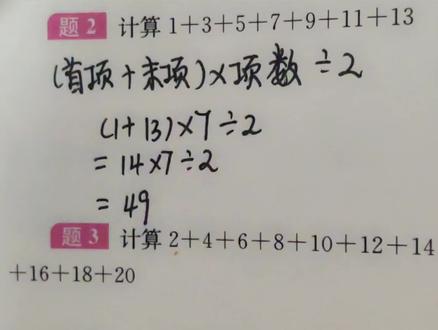 题2 计算1+3+5+7+9+11+13
(首项+末项)×项数÷2
(1+13)×7÷2
=14×7÷2
=49
题3 计算2+4+6+8+10+12+14
+16+18+20